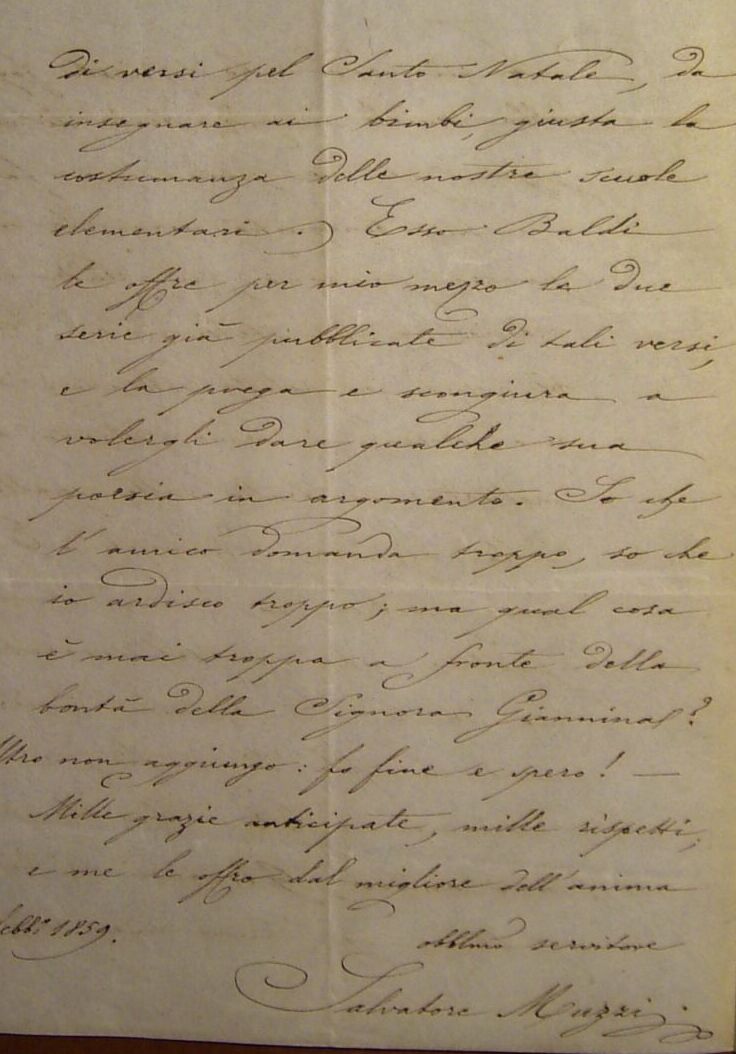 di versi pel Santo Natale, da
insegnare ai bimbi, giusta la
costumanza delle nostre scuole
elementari. Esso Baldi
le offre per mio mezzo le due
serie già pubblicate di tali versi,
e la prega e scongiura a
volergli dare qualche sua
poesia in argomento. So che
l'amico domanda troppo, so che
io ardisco troppo; ma qual cosa
è mai troppa a fronte della
bontà della Signora Giannina?
Altro non aggiungo: fo fine e spero! —
Mille grazie anticipate, mille rispetti,
e me le offro dal migliore dell'anima
febb.º 1859.
obblmo servitore
Salvatore Muzzi